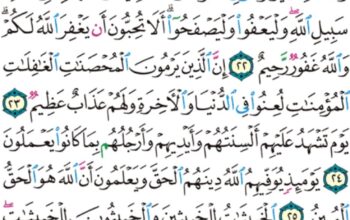 سَبِيلِ ٱللَّهِ ۖ وَلۡيَعۡفُواْ وَلۡيَصۡفَحُوٓاْ ۗ أَلَا تُحِبُّونَ أَن يَغۡفِرَ ٱللَّهُ لَكُمۡ ۗ
وَٱللَّهُ غَفُورٞ رَّحِيمٌ ٢٢ إِنَّ ٱلَّذِينَ يَرۡمُونَ ٱلۡمُحۡصَنَٰتِ ٱلۡغَٰفِلَٰتِ
ٱلۡمُؤۡمِنَٰتِ لُعِنُواْ فِي ٱلدُّنۡيَا وَٱلۡأٓخِرَةِ وَلَهُمۡ عَذَابٌ عَظِيمٞ ٢٣
يَوۡمَ تَشۡهَدُ عَلَيۡهِمۡ أَلۡسِنَتُهُمۡ وَأَيۡدِيهِمۡ وَأَرۡجُلُهُم بِمَا كَانُواْ يَعۡمَلُونَ
٢٤ يَوۡمَئِذٖ يُوَفِّيهِمُ ٱللَّهُ دِينَهُمُ ٱلۡحَقَّ وَيَعۡلَمُونَ أَنَّ ٱللَّهَ هُوَ ٱلۡحَقُّ
٢٥